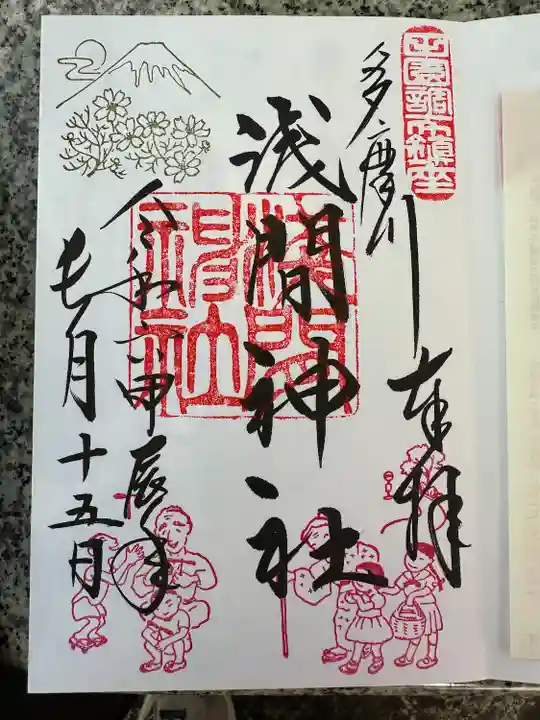 田園調布鎮座
多摩川
奉拝
浅間神社
浅間神社
令和六甲辰年
七月十五日